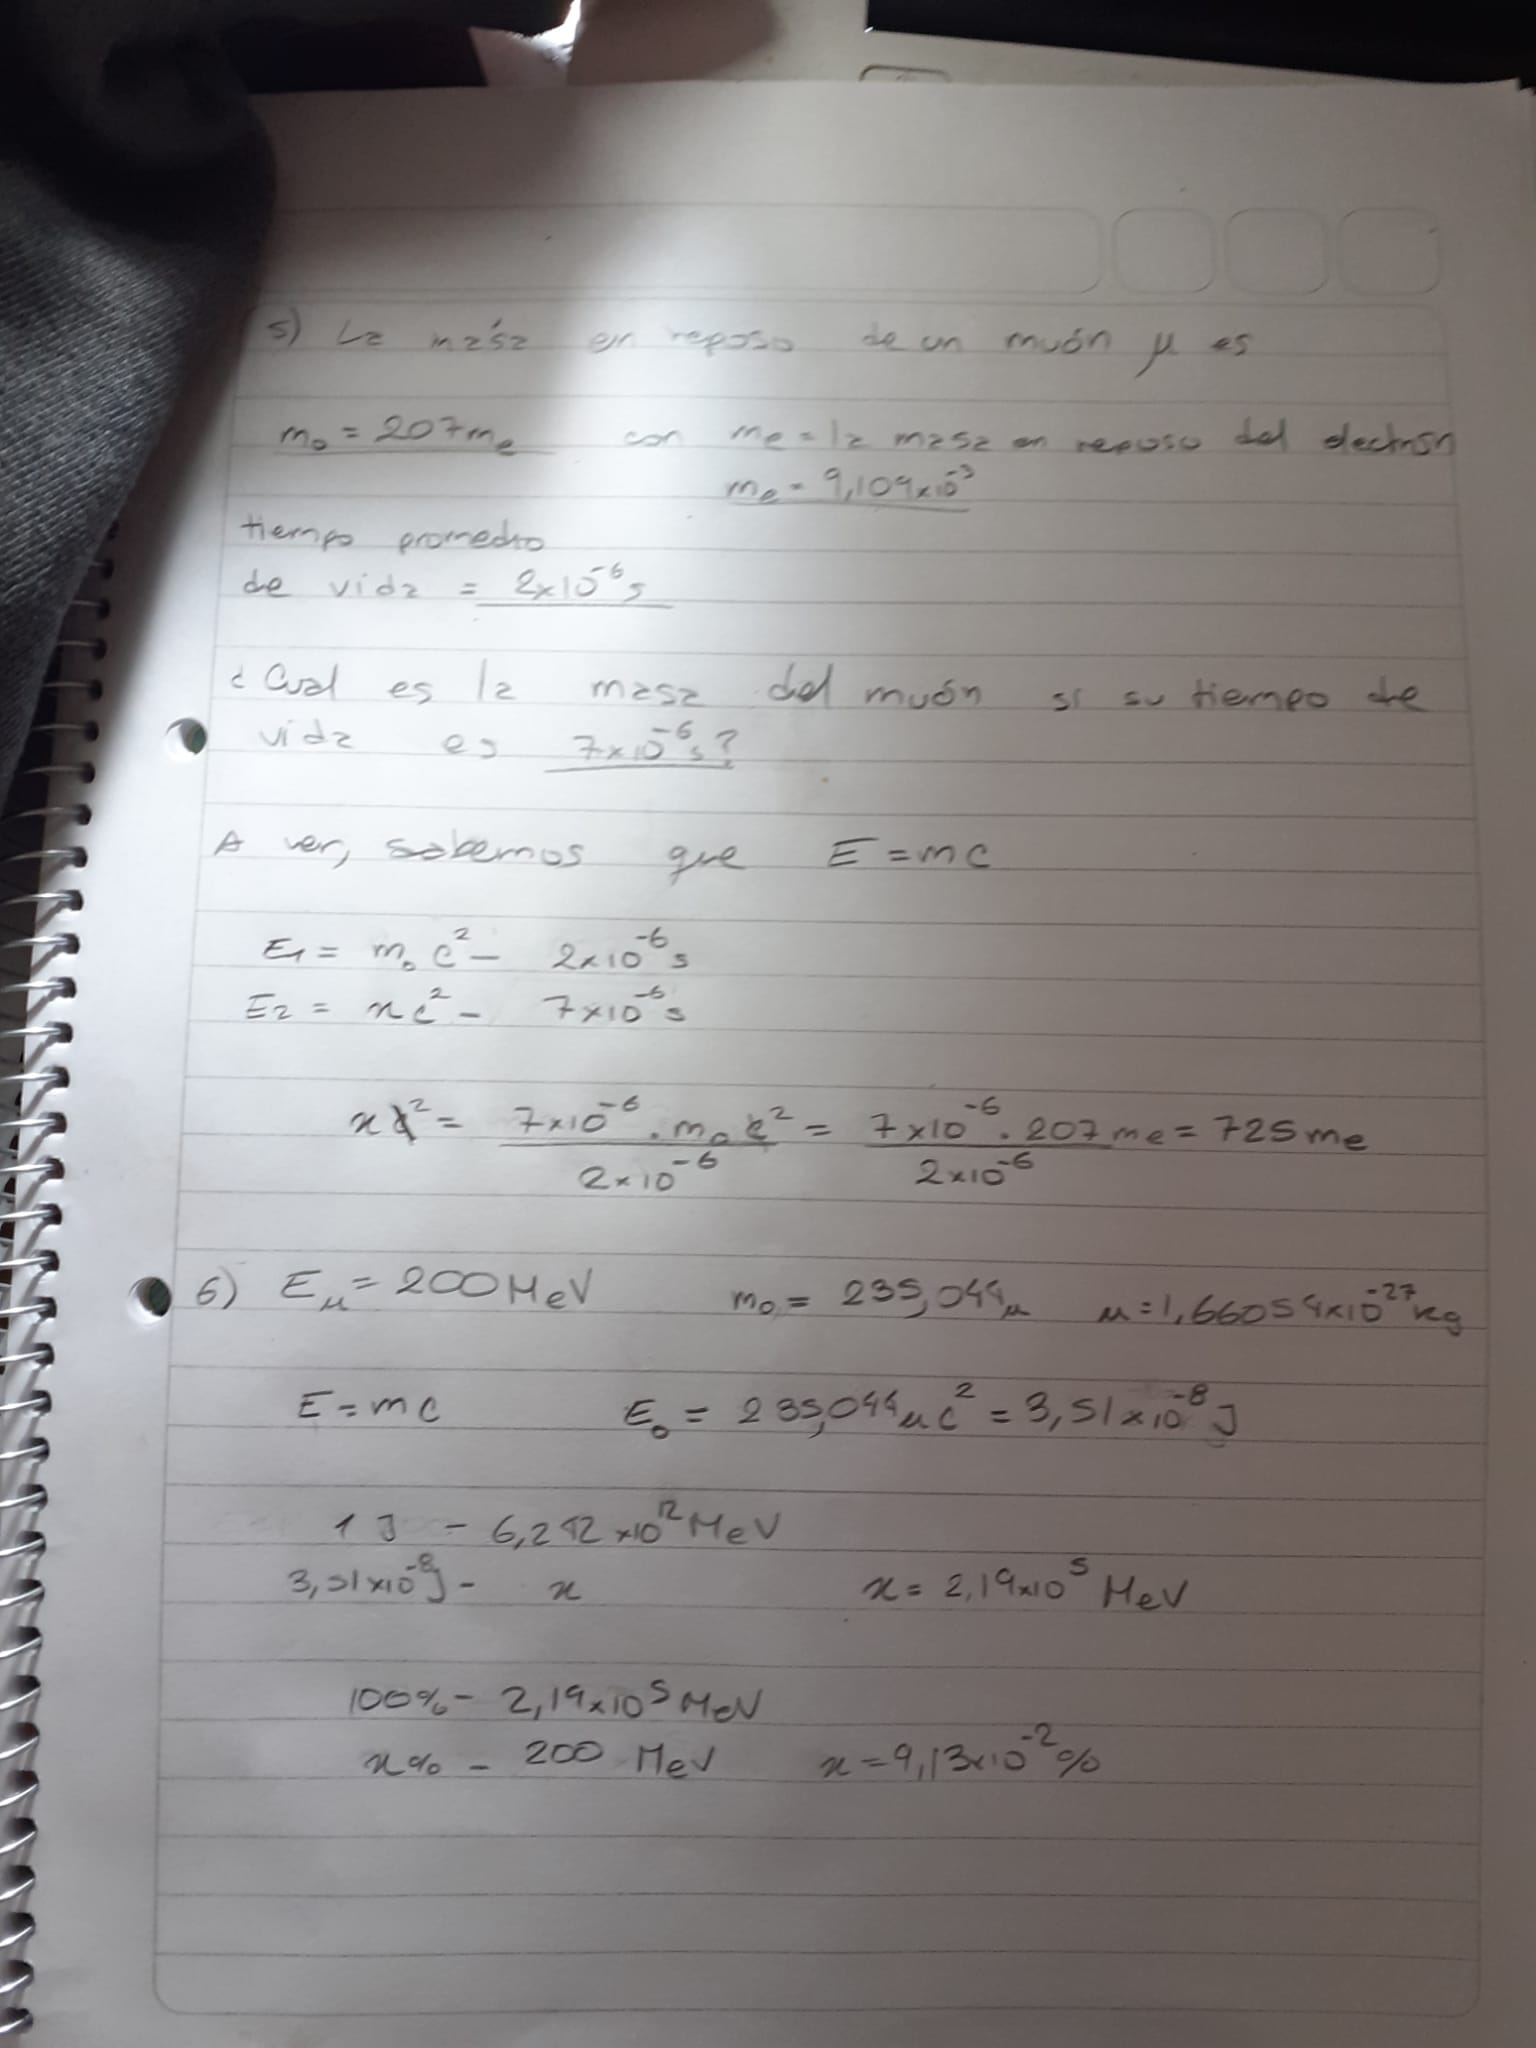 5) La mása en reposo de un muón μ es
m₀ = 207me con me = la masa en reposo del electrón
me = 9,109x10⁻³
tiempo promedio
de vida = 2x10⁻⁶s
¿Cual es la masa del muón si su tiempo de
vida es 7x10⁻⁶s?
A ver, sabemos que E = mc
E1 = m₀c² - 2x10⁻⁶s
E2 = xc² - 7x10⁻⁶s
xc² = 7x10⁻⁶ . m₀c² / 2x10⁻⁶ = 7x10⁻⁶ . 207me / 2x10⁻⁶ = 725me
6) Eμ = 200MeV m₀ = 235,044μ μ = 1,66054x10⁻²⁷kg
E = mc E₀ = 235,044μc² = 3,51x10⁻⁸J
1J - 6,242x10¹²MeV
3,51x10⁻⁸J - x x = 2,19x10⁵ MeV
100% - 2,19x10⁵MeV
x% - 200 MeV x = 9,13x10⁻²%